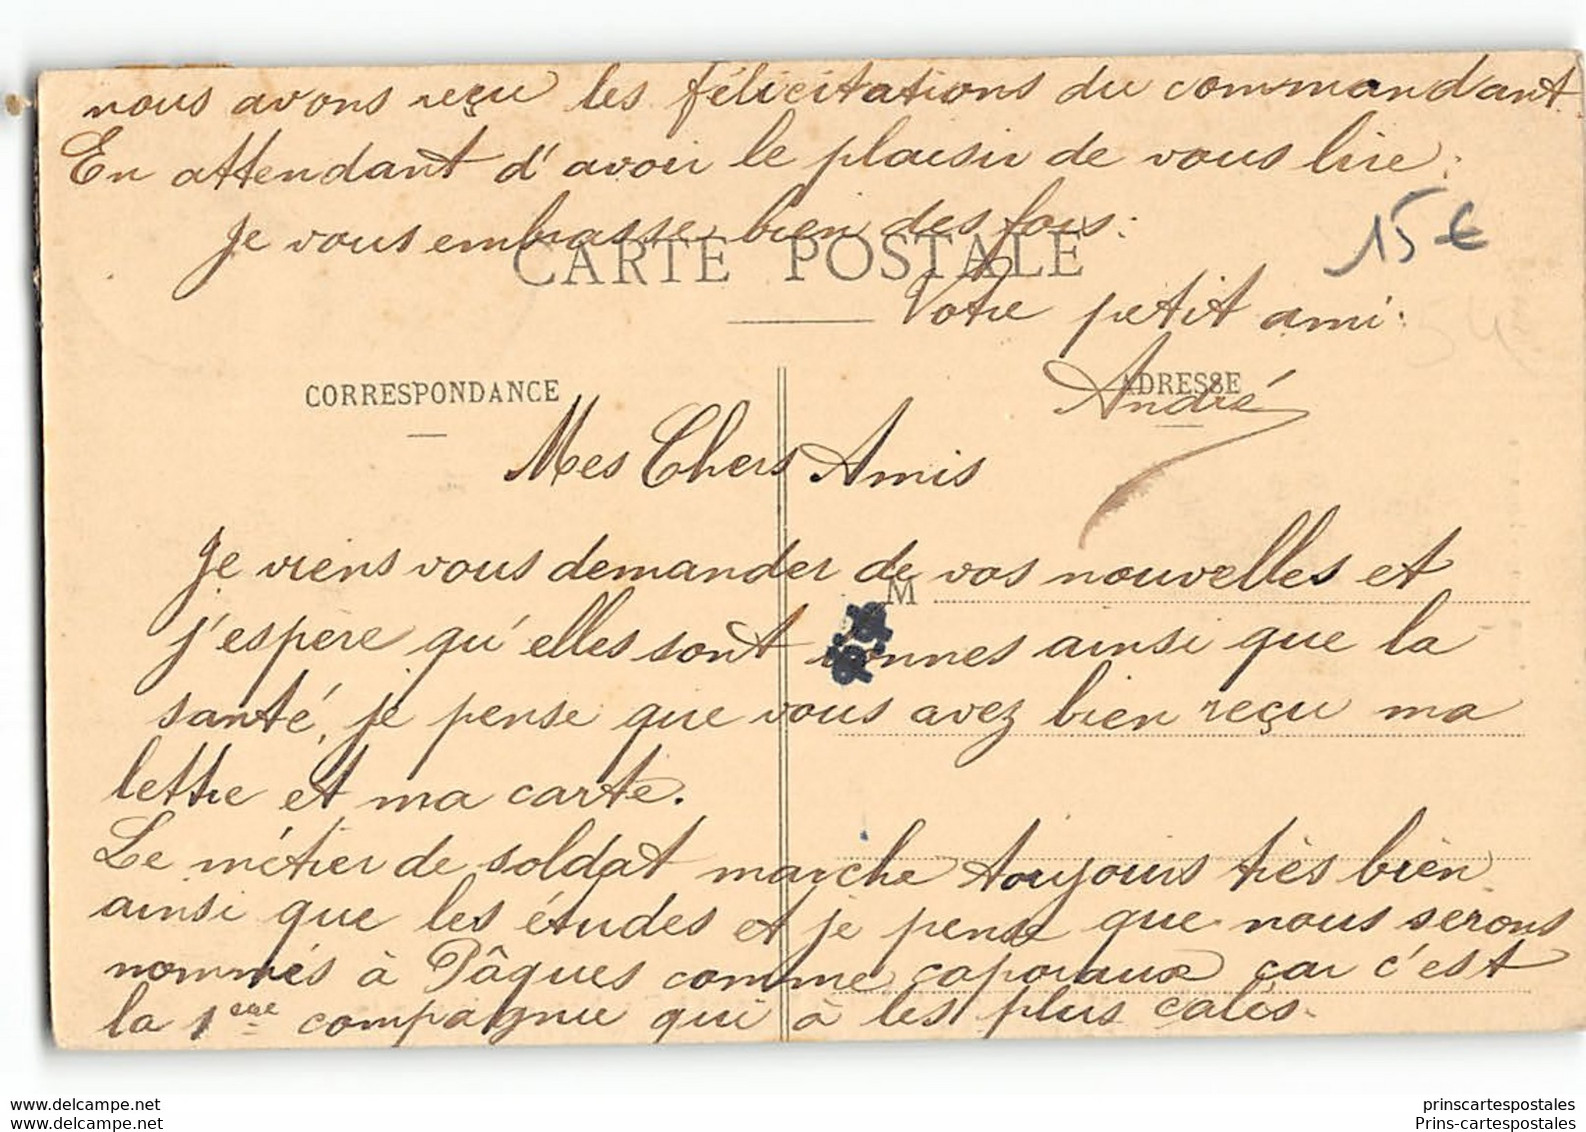 nous avons reçu les félicitations du commandant.
En attendant d'avoir le plaisir de vous lire.
Je vous embrasse bien des fois.
15€
CARTE POSTALE
Votre petit ami.
CORRESPONDANCE
ADRESSE
André
Mes Chers Amis
Je viens vous demander de vos nouvelles et
M
j'espere qu'elles sont bonnes ainsi que la
santé, je pense que vous avez bien reçu ma
lettre et ma carte.
Le métier de soldat marche toujours très bien
ainsi que les études et je pense que nous serons
nommés à Pâques comme caporaux car c'est
la 1ere compagnie qui à les plus calés.
www.delcampe.net
www.delcampe.net
prinscartespostales
Prins-cartespostales